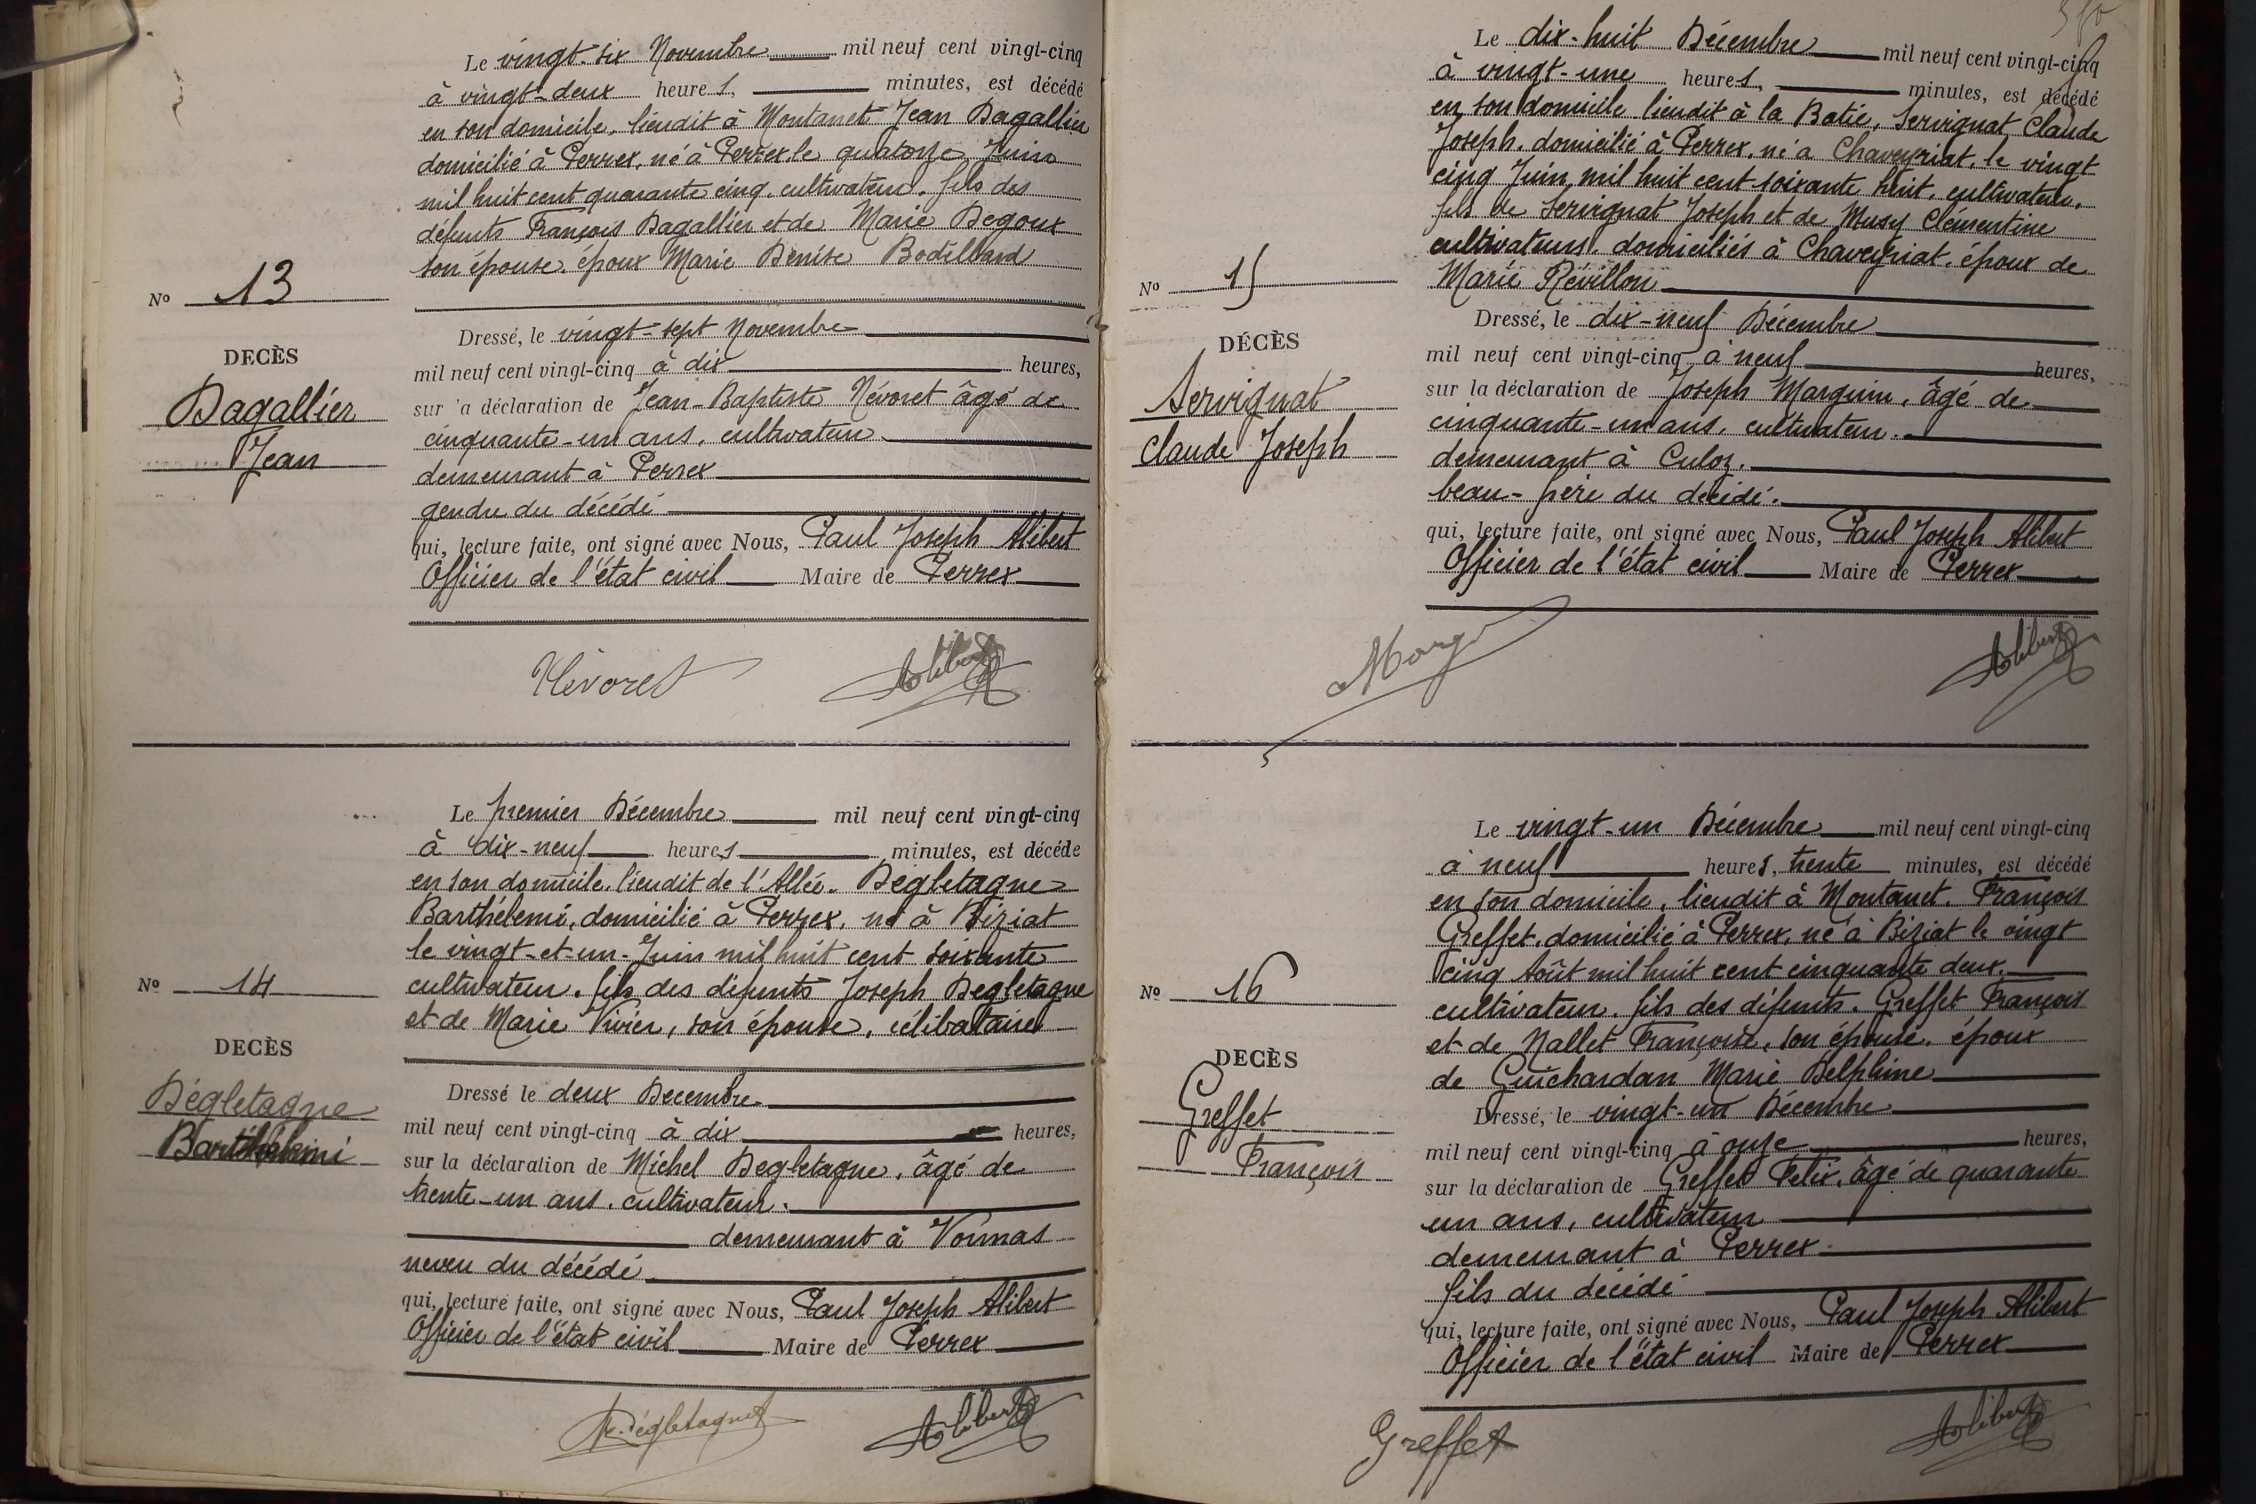 Le vingt-six Novembre mil neuf cent vingt-cinq
à vingt-deux heures, minutes, est décédé
en son domicile, lieudit à Montanet Jean Dagallier
domicilié à Perrex, né à Perrex, le quatorze Juin
mil huit cent quarante cinq, cultivateur, fils des
défunts François Dagallier et de Marie Degoux
son épouse, époux Marie Denise Bodillard
No 13
DECÈS
Dagallier
Jean
Dressé, le vingt-sept Novembre
mil neuf cent vingt-cinq à dix heures,
sur la déclaration de Jean-Baptiste Névoret âgé de
cinquante-un ans, cultivateur
demeurant à Perrex
gendre du décédé
qui, lecture faite, ont signé avec Nous, Paul Joseph Alibert
Officier de l'état civil Maire de Perrex
Névoret Alibert
Le premier Décembre mil neuf cent vingt-cinq
à dix-neuf heures minutes, est décédé
en son domicile, lieudit de l'Allée. Degletagne
Barthélemi, domicilié à Perrex, né à Biziat
le vingt-et-un Juin mil huit cent soixante
cultivateur, fils des défunts Joseph Degletagne
et de Marie Vivier, son épouse, célibataire
No 14
DECÈS
Dégletagne
Barthélemi
Dressé le deux Decembre
mil neuf cent vingt-cinq à dix heures,
sur la déclaration de Michel Degletagne, âgé de
trente-un ans, cultivateur.
demeurant à Vonnas
neveu du décédé
qui, lecture faite, ont signé avec Nous, Paul Joseph Alibert
Officier de l'état civil Maire de Perrex
Alibert
Le dix-huit Décembre mil neuf cent vingt-cinq
à vingt-une heures, minutes, est décédé
en son domicile lieudit à la Batie, Servignat Claude
Joseph, domicilié à Perrex, né à Chaveyriat, le vingt
cinq Juin mil huit cent soixante huit, cultivateur,
fils de Servignat Joseph et de Musy Clémentine
cultivateurs, domiciliés à Chaveyriat, époux de
Marie Révillon
No 15
DÉCÈS
Servignat
Claude Joseph
Dressé, le dix-neuf Décembre
mil neuf cent vingt-cinq à neuf heures,
sur la déclaration de Joseph Marguin, âgé de
cinquante-un ans, cultivateur.
demeurant à Culoz.
beau-frère du décédé.
qui, lecture faite, ont signé avec Nous, Paul Joseph Alibert
Officier de l'état civil Maire de Perrex
Alibert
Le vingt-un Décembre mil neuf cent vingt-cinq
à neuf heures, trente minutes, est décédé
en son domicile, lieudit à Montanet. François
Greffet, domicilié à Perrex, né à Biziat le vingt
cinq Août mil huit cent cinquante deux.
cultivateur, fils des défunts. Greffet François
et de Nallet Françoise, son épouse, époux
de Guichardan Marie Delphine
No 16
DECÈS
Greffet
François
Dressé, le vingt-un Décembre
mil neuf cent vingt-cinq à onze heures,
sur la déclaration de Greffet Félix, âgé de quarante
un ans, cultivateur
demeurant à Perrex
fils du décédé
qui, lecture faite, ont signé avec Nous, Paul Joseph Alibert
Officier de l'état civil Maire de Perrex
Greffet Alibert